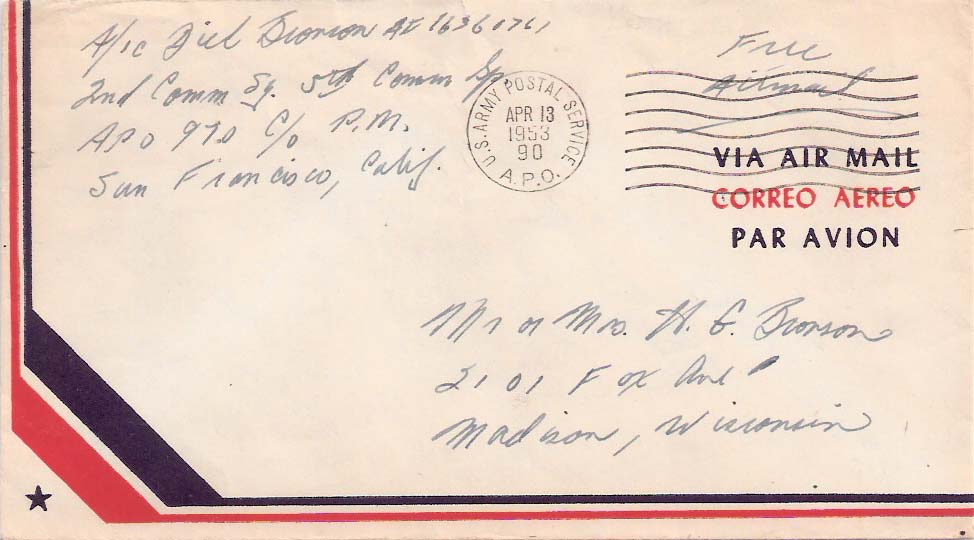 A/1c Bill Bronson AF 16361761
2nd Comm Sq. 5th Comm Gp.
APO 970 c/o P.M.
San Francisco, Calif.
U.S. ARMY POSTAL SERVICE
APR 13
1953
90
A.P.O.
Free
Airmail
VIA AIR MAIL
CORREO AEREO
PAR AVION
Mr or Mrs. H. G. Bronson
2101 Fox Ave
Madison, Wisconsin